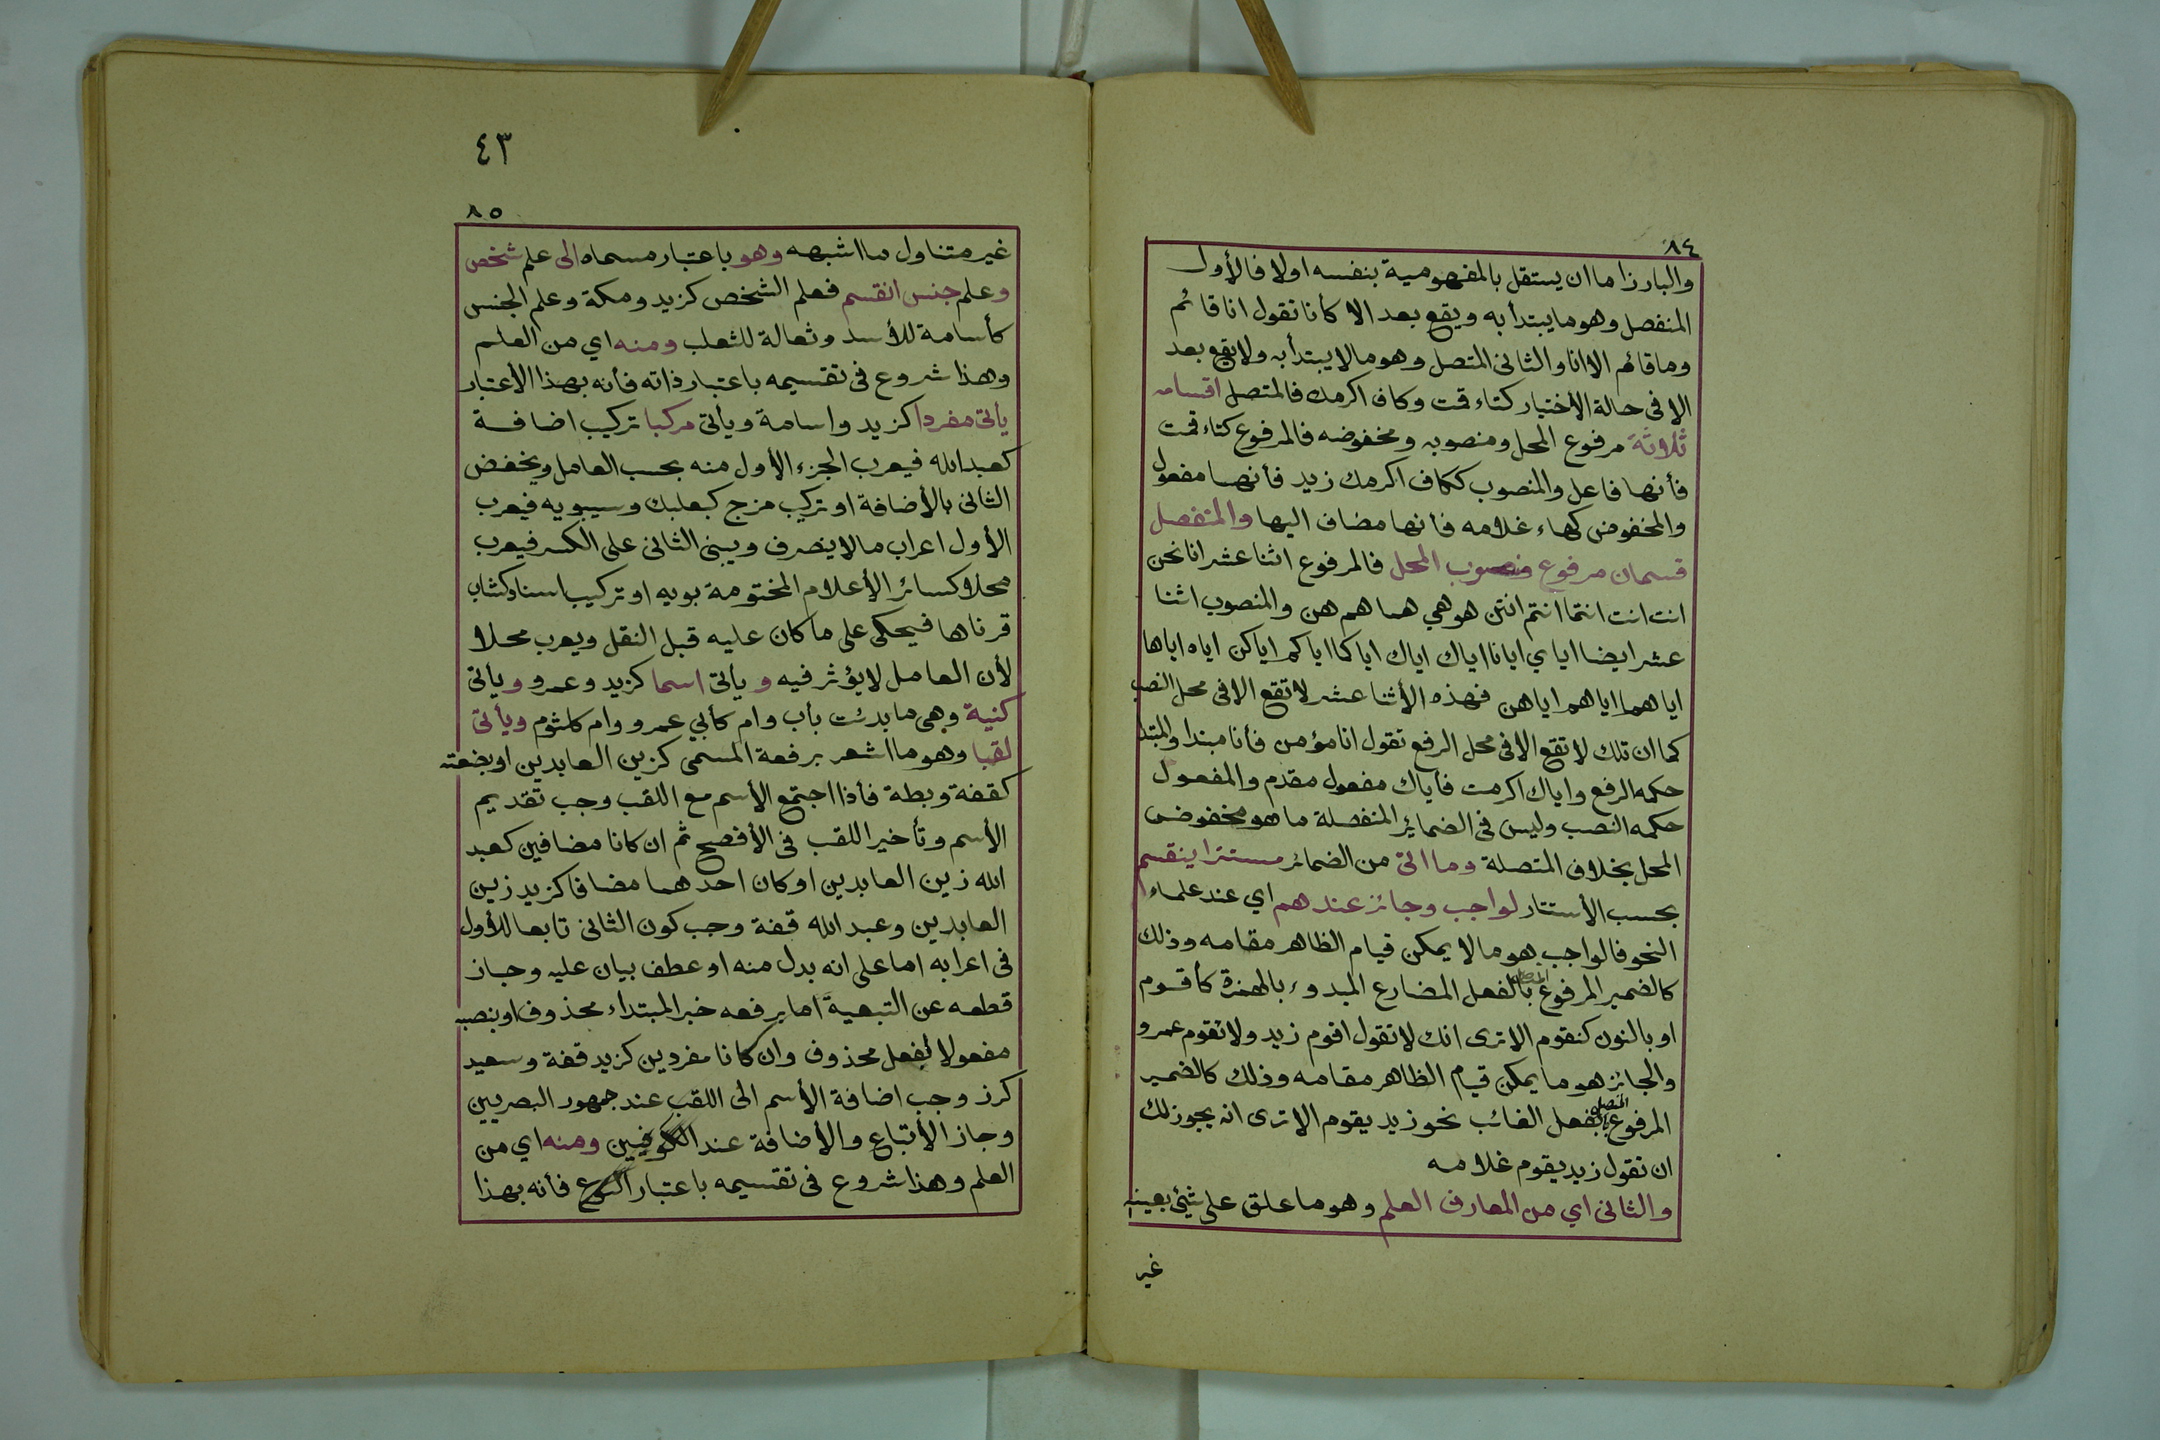 ٨٤
والبارز اما ان يستقل بالمفهومية بنفسه اولا فالأول
المنفصل وهو ما يبتدأ به ويقع بعد الا كأنا تقول انا قائم
وما قائم الا انا والثانى المتصل وهو مالا يبتدأ به ولا يقع بعد
الا فى حالة الأختيار كتاء قمت وكاف اكرمك فالمتصل اقسامه
ثلاثة مرفوع المحل ومنصوبه ومخفوضه فالمرفوع كتاء قمت
فأنها فاعل والمنصوب ككاف اكرمك زيد فأنها مفعول
والمخفوض كهاء غلامه فأنها مضاف اليها والمنفصل
قسمان مرفوع منصوب المحل فالمرفوع اثنا عشر انا نحن
انت انت انتما انتم انتن هو هي هما هم هن والمنصوب اثنا
عشر ايضا اياي ايانا اياك اياك اياكما اياكم اياكن اياه اياها
اياهما اياهم اياهن فهذه الأثنا عشر لا تقع الا فى محل النصب
كما ان تلك لا تقع الا فى محل الرفع تقول انا مؤمن فأنا مبتدا والمبتدا
حكمه الرفع واياك اكرمت فأياك مفعول مقدم والمفعول
حكمه النصب وليس فى الضمائر المنفصلة ما هو مخفوض
المحل بخلاف المتصلة وما اتى من الضمائر مستترا ينقسم
بحسب الأستتار لواجب وجائز عندهم اي عند علماء
النحو فالواجب هو مالا يمكن قيام الظاهر مقامه وذلك
كالضمير المرفوع بالفعل المضارع المبدوء بالهمزة كأقوم
او بالنون كنقوم الا ترى انك لا تقول اقوم زيد ولا نقوم عمرو
والجائز هو ما يمكن قيام الظاهر مقامه وذلك كالضمير
المتصل
المرفوع بفعل الغائب نحو زيد يقوم الا ترى انه يجوز لك
ان تقول زيد يقوم غلامه
والثانى اي من المعارف العلم وهو ما علق على شيئ بعينه
غير
٤٣
٨٥
غير متناول ما اشبهه وهو باعتبار مسماه الى علم شخص
وعلم جنس انقسم فعلم الشخص كزيد ومكة وعلم الجنس
كأسامة للأسد وثعالة للثعلب ومنه اي من العلم
وهذا شروع فى تقسيمه باعتبار ذاته فأنه بهذا الأعتبار
يأتى مفردا كزيد واسامة ويأتى مركبا تركيب اضافة
كعبد الله فيعرب الجزء الأول منه بحسب العامل ويخفض
الثانى بالأضافة او تركيب مزج كبعلبك وسيبويه فيعرب
الأول اعراب مالا ينصرف ويبنى الثانى على الكسر فيعرب
محلا كسائر الأعلام المختومة بويه او تركيب اسناد كشاب
قرناها فيحكى على ما كان عليه قبل النقل ويعرب محلا
لأن العامل لا يؤثر فيه ويأتى اسما كزيد وعمرو ويأتى
كنية وهى ما بدئت بأب وام كأبي عمرو وام كلثوم ويأتى
لقبا وهو ما اشعر برفعة المسمى كزين العابدين او بضعته
كقفة وبطة فأذا اجتمع الأسم مع اللقب وجب تقديم
الأسم وتأخير اللقب فى الأفصح ثم ان كانا مضافين كعبد
الله زين العابدين او كان احدهما مضافا كزيد زين
العابدين وعبد الله قفة وجب كون الثانى تابعا للأول
فى اعرابه اما على انه بدل منه او عطف بيان عليه وجاز
قطعه عن التبعية اما برفعه خبر المبتداء محذوف او بنصبه
مفعولا لفعل محذوف وان كانا مفردين كزيد قفة وسعيد
كرز وجب اضافة الأسم الى اللقب عند جمهور البصريين
وجاز الأتباع والأضافة عند الكوفيين ومنه اي من
العلم وهذا شروع فى تقسيمه باعتبار النوع فأنه بهذا